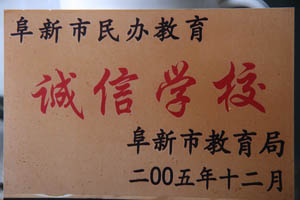 阜新市民办教育
诚信学校
阜新市教育局
二00五年十二月